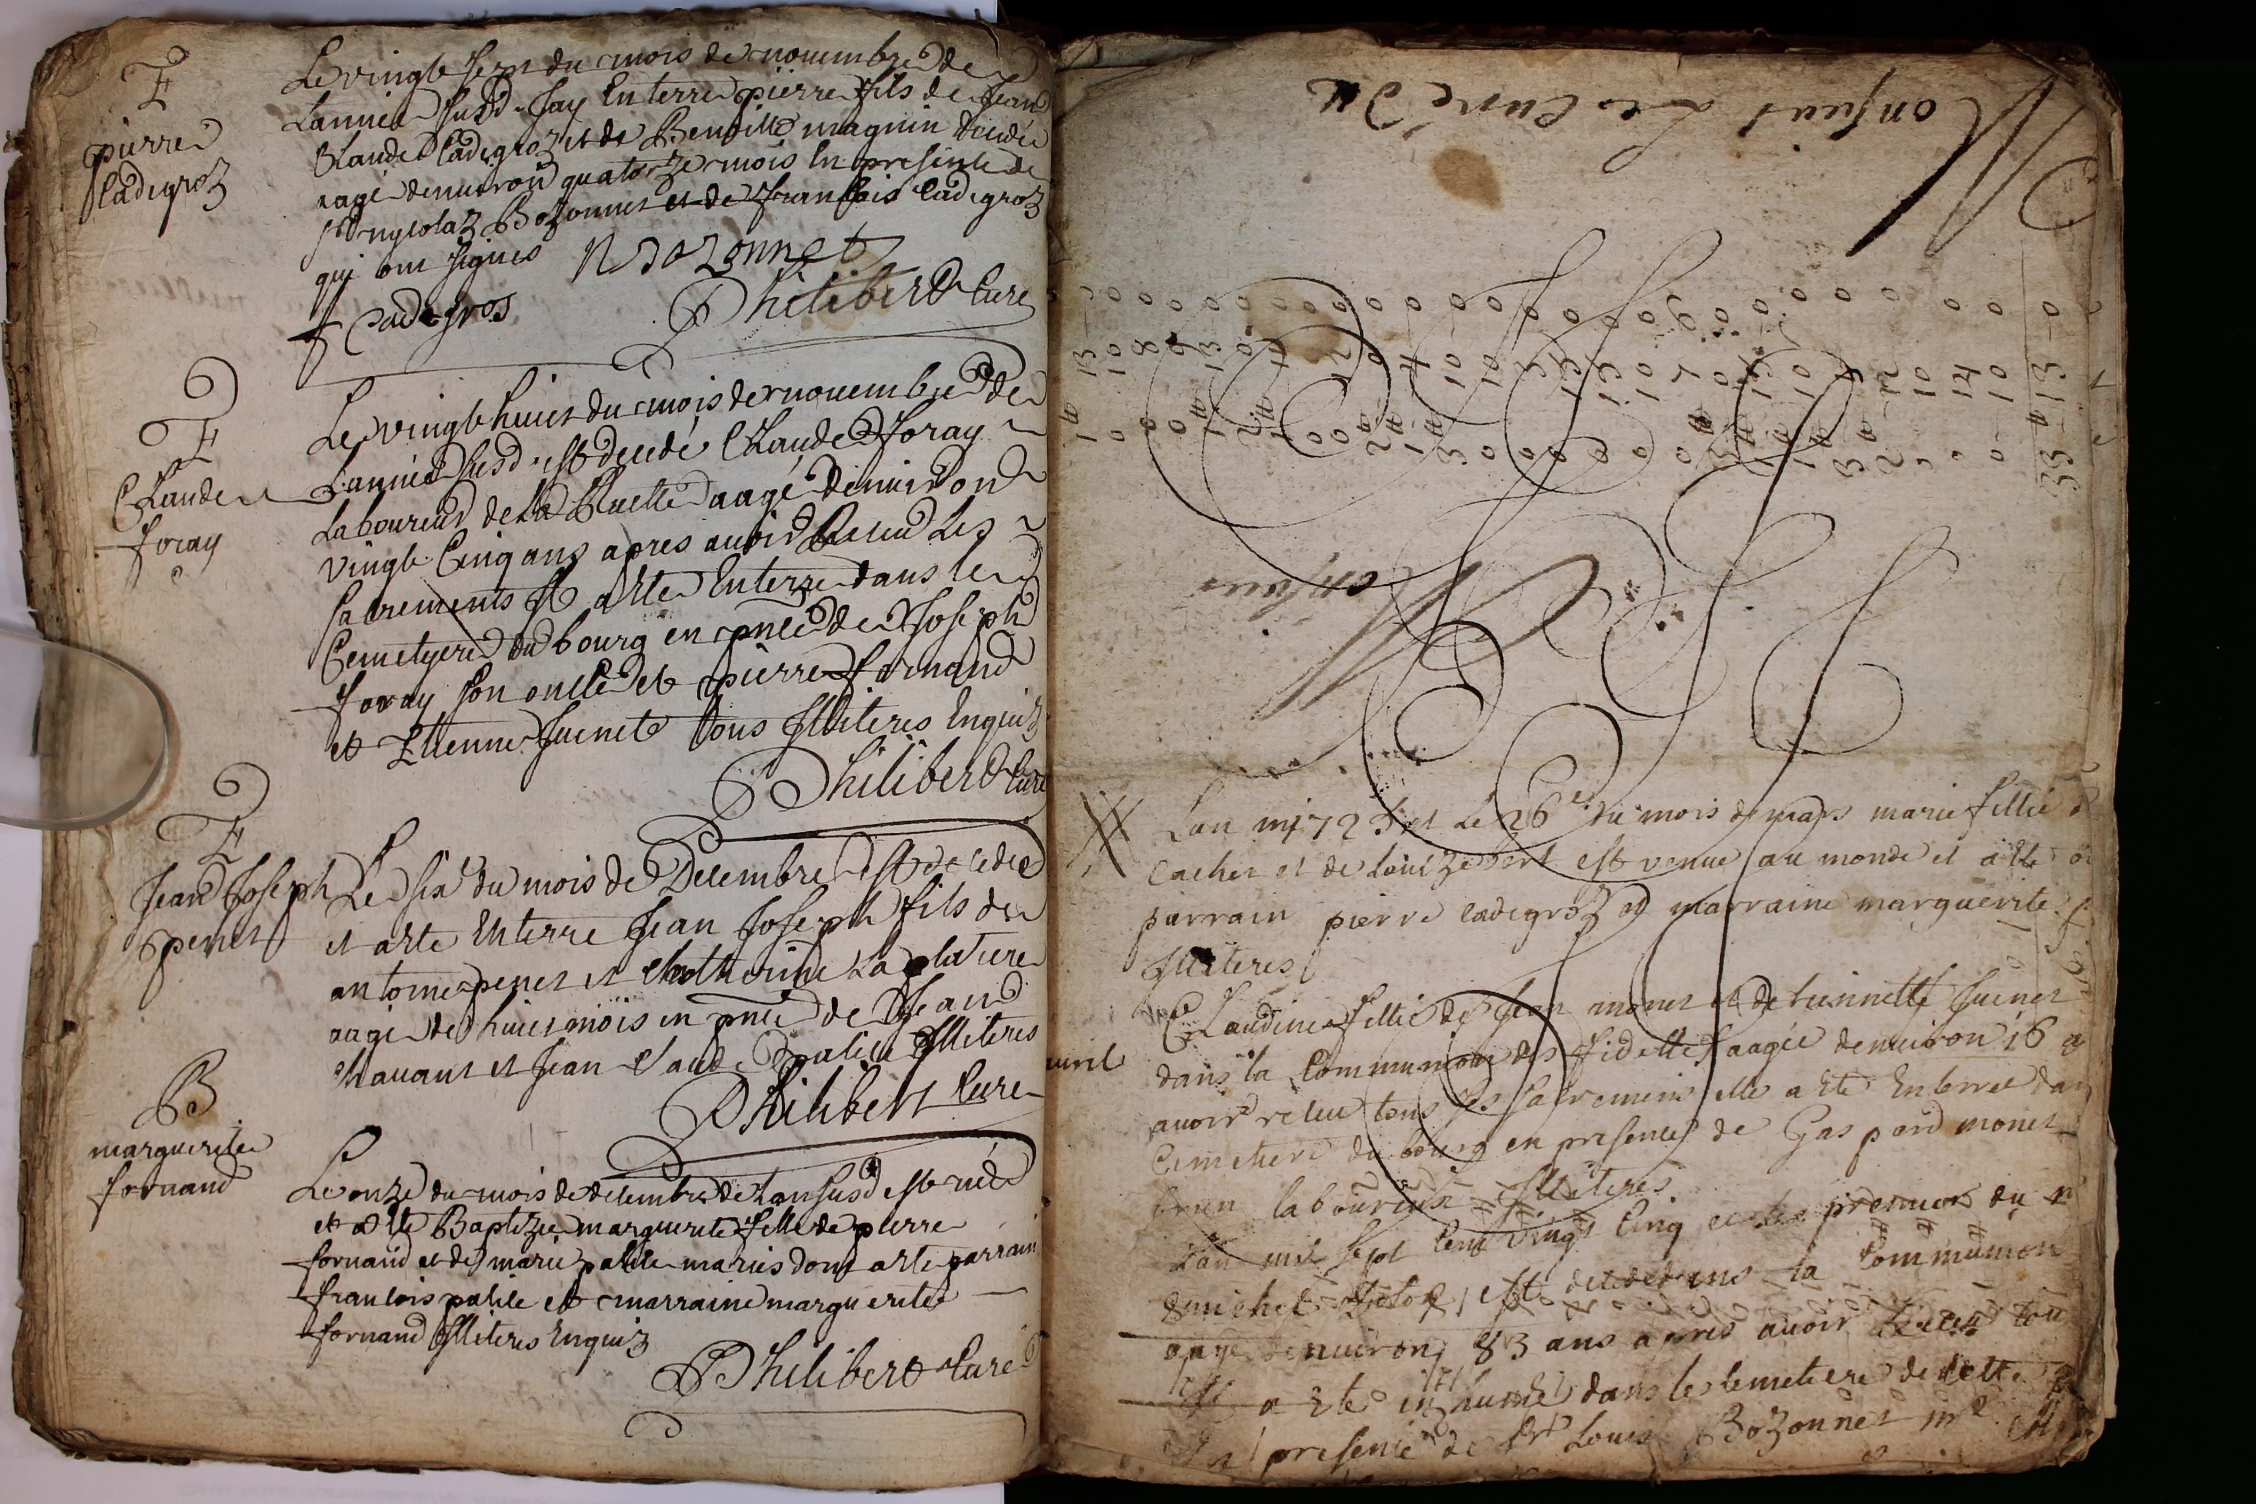 E
pierre
Cadegroz
Le vingt sept du mois de nouembre de
Lannee susd. Jay Enterre pierre fils de Jean
Claude Cadegroz et de Benoitte magnin decedé
aagé denuiron quatorze mois En presence de
sr nycolaz Bozonnet et de francois Cadegroz
qui ont signes N Bozonnet
f Cadegros Philibert Curé
E
Claude
foray
Le vingt huict du mois de nouembre de
Lannée susd. est decedé Claude foray
Laboureur de la Ruette aagé denuiron
vingt Cinq ans apres auoir Receu Les
sacrements Et a este Enterre dans le
Cemetyere du bourg en pnce de Joseph
foray son oncle et pierre fornand
et Etienne Juenet tous Illiteres Enquis
Philibert Curé
E
Jean Joseph
penet
Le six du mois de Decembre est decedé
et a este Enterre Jean Joseph fils de
antoine penet et Chatherine La platiere
aagé de huict mois en pnce de Jean
chauant et Jean Claude palice Illiteres
Philibert Curé
B
marguerite
fornand
Le onze du mois de decembre de Lan susd est née
et a este Baptizée marguerite fille de pierre
fornand et de marie palice maries dont a este parrain
francois palice et marraine marguerite
fornand Illiteres Enquis
Philibert Curé
Monsieur Le Curé du
1 13 0
0 10 0
0 8 0
0 9 0
1 13 0
2 0 0
1 10 0
0 12 0
2 0 0
1 4 0
3 10 0
0 10 0
0 15 0
0 10 0
0 7
3 0
1 15 0
1 10 0
2 12 0
10
0 14 0
0 10 0
33 13 0
Monsieur
Lan mj 725 et Le 26e du mois de mars marie fillie d
cachet et de Louize bert est venue au monde et a este
parrain pierre cadegroz et marraine marguerite
Illiteres
Claudine fillie de Jean monet et de tiennette Juenet
auril dans la Communion des fidelles aagée denuiron 16 a
auoir receu tous les sacremens elle a este Enterree dan
Cemetiere du bourg en presence de Gaspard monet
laboureur Illiteres
Lan mil sept cent vingt cinq et le premier du m
michel est decede dans la Communion
aagé denuiron 83 ans apres auoir receu tou
Il a este inhumé dans le cemetiere de cette
En presence de sr Louis Bozonnet mr